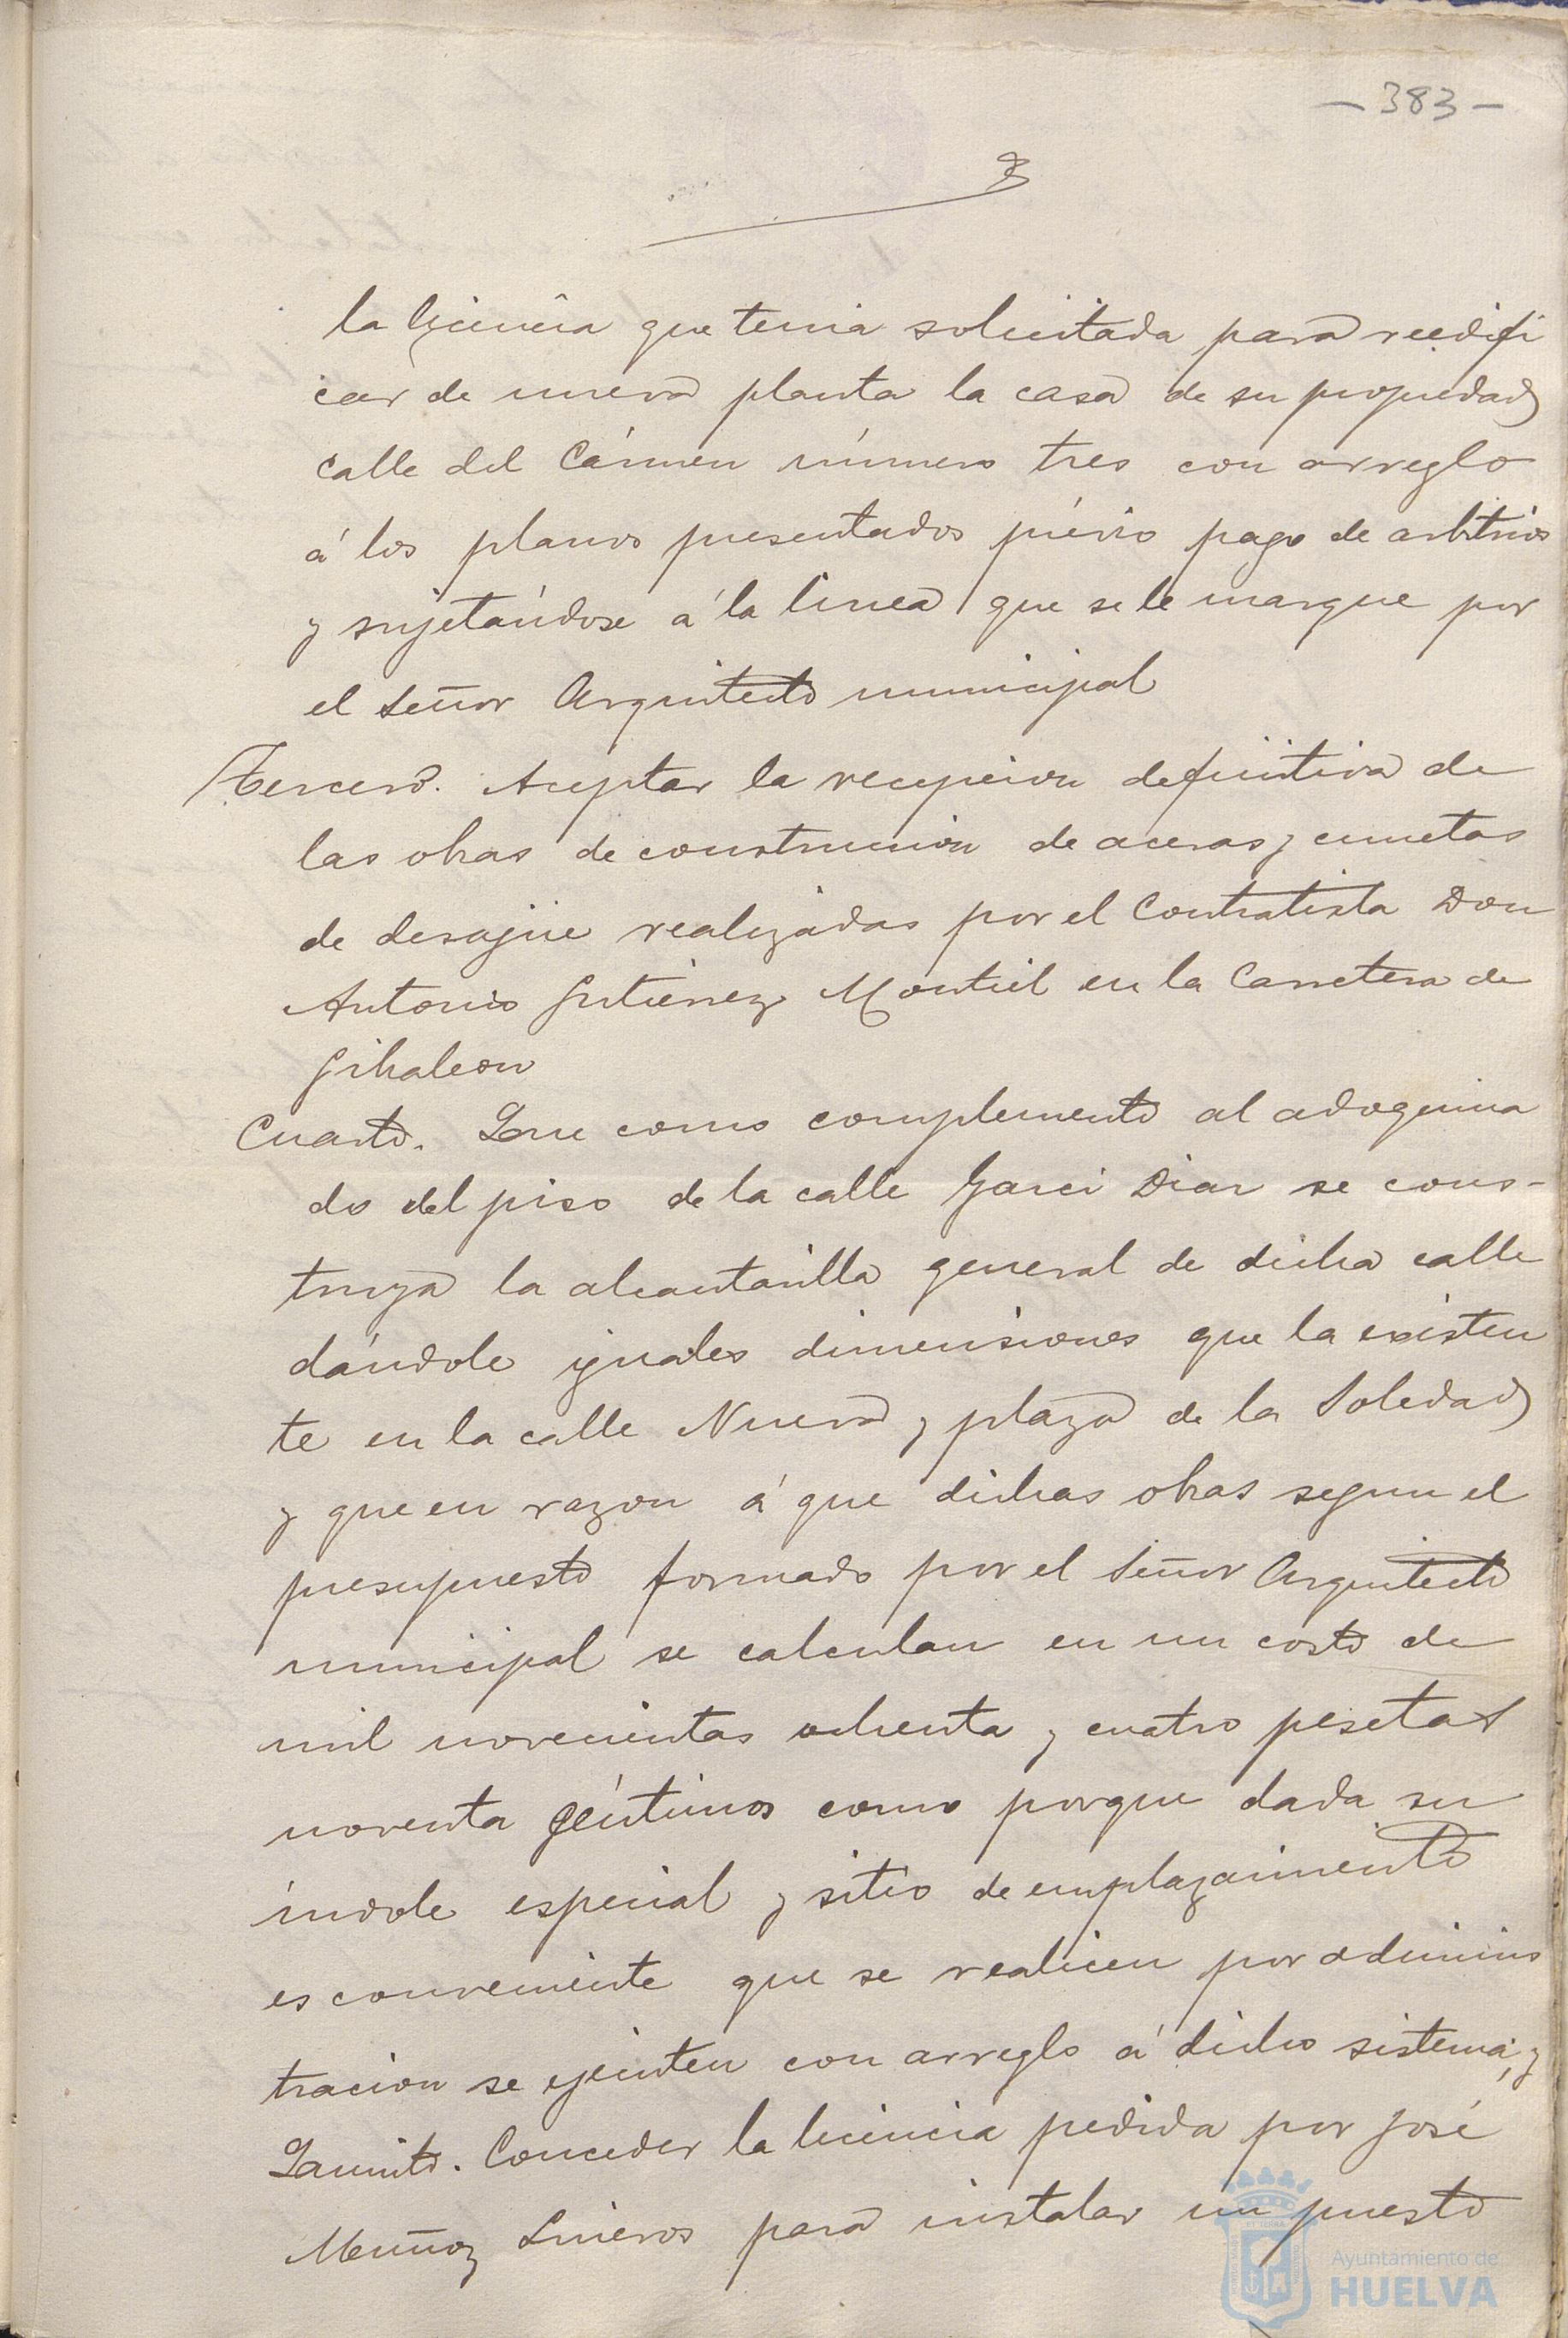 — 383 —
la licencia que tenia solicitada para reedifi
car de nueva planta la casa de su propiedad
calle del Cármen número tres con arreglo
á los planos presentados prévio pago de arbitrios
y sujetándose á la linea que se le marque por
el Señor Arquitecto municipal
Tercero. Aceptar la recepcion definitiva de
las obras de construccion de aceras y cunetas
de desagüe realizadas por el Contratista Don
Antonio Gutierrez Montiel en la Carretera de
Gibraleon
Cuarto. Que como complemento al adoquina
do del piso de la calle Garci Diaz se cons-
truya la alcantarilla general de dicha calle
dándole iguales dimensiones que la existen
te en la calle Nueva y plaza de la Soledad
y que en razon á que dichas obras segun el
presupuesto formado por el Señor Arquitecto
municipal se calculan en un costo de
mil novecientas ochenta y cuatro pesetas
noventa céntimos como porque dada su
índole especial y sitio de emplazamiento
es conveniente que se realicen por adminis
tracion se ejecuten con arreglo á dicho sistema, y
Quinto. Conceder la licencia pedida por José
Muñoz para instalar un puesto
Ayuntamiento de
HUELVA